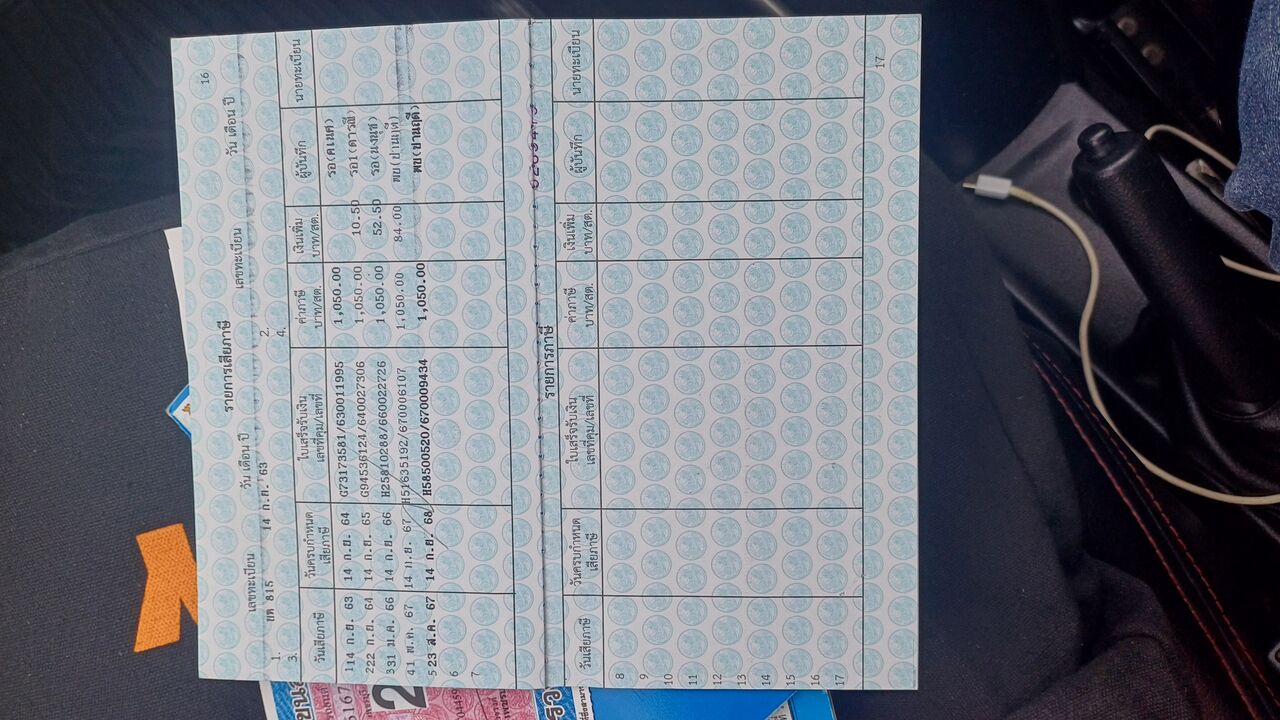 16
รายการเสียภาษี
เลขทะเบียน วัน เดือน ปี เลขทะเบียน วัน เดือน ปี
1. 815 14 ก.ย. 63 2.
3. 4.
วันเสียภาษี วันครบกำหนดเสียภาษี ใบเสร็จรับเงินเลขที่คุม/เลขที่ ค่าภาษีบาท/สต. เงินเพิ่มบาท/สต. ผู้บันทึก นายทะเบียน
114 ก.ย. 63 14 ก.ย. 64 G73173581/630011995 1,050.00 รอ(คเนศ)
222 ก.ย. 64 14 ก.ย. 65 G94536124/640027306 1,050.00 10.50 รอ1(ดารณี)
331 ม.ค. 66 14 ก.ย. 66 H25810288/660022726 1,050.00 52.50 รอ(นงนุช)
41 พ.ค. 67 14 67 H51635192/670006107 1,050.00 84.00
5 23 ส.ค. 67 14 ก.ย. 68 H58500520/670009434 1,050.00
6
7
รายการภาษี
วันเสียภาษี วันครบกำหนดเสียภาษี ใบเสร็จรับเงินเลขที่คุม/เลขที่ ค่าภาษีบาท/สต. เงินเพิ่มบาท/สต. ผู้บันทึก นายทะเบียน
8
9
10
11
12
13
14
15
16
17
17